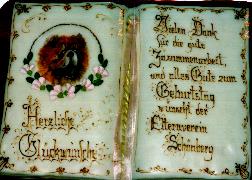 Herzliche
Glückwünsche
Vielen Dank
für die gute
Zusammenarbeit
und alles Gute zum
Geburtstag
wünscht der
Elternverein
Schönberg